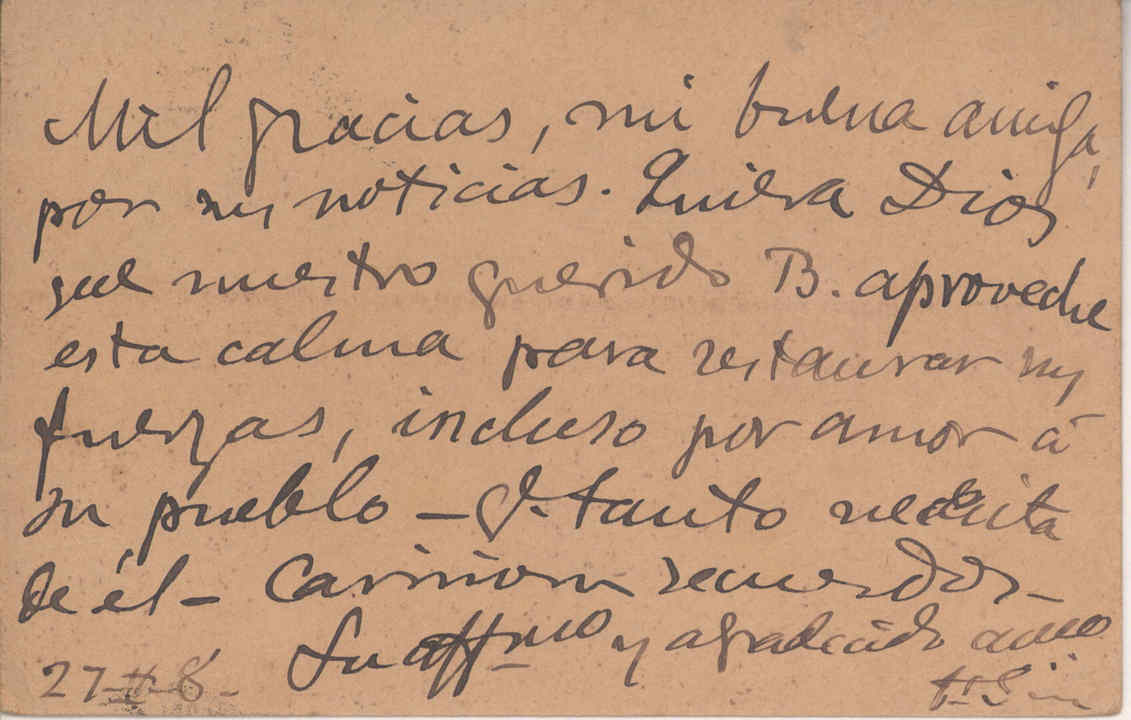 Mil gracias, mi buena amiga,
por sus noticias. Quiera Dios
que nuestro querido B. aproveche
esta calma para restaurar sus
fuerzas, incluso por amor á
su pueblo – q. tanto necesita
de él – Cariñosos recuerdos –
Su affmo y agradecido amo
27-II-8-